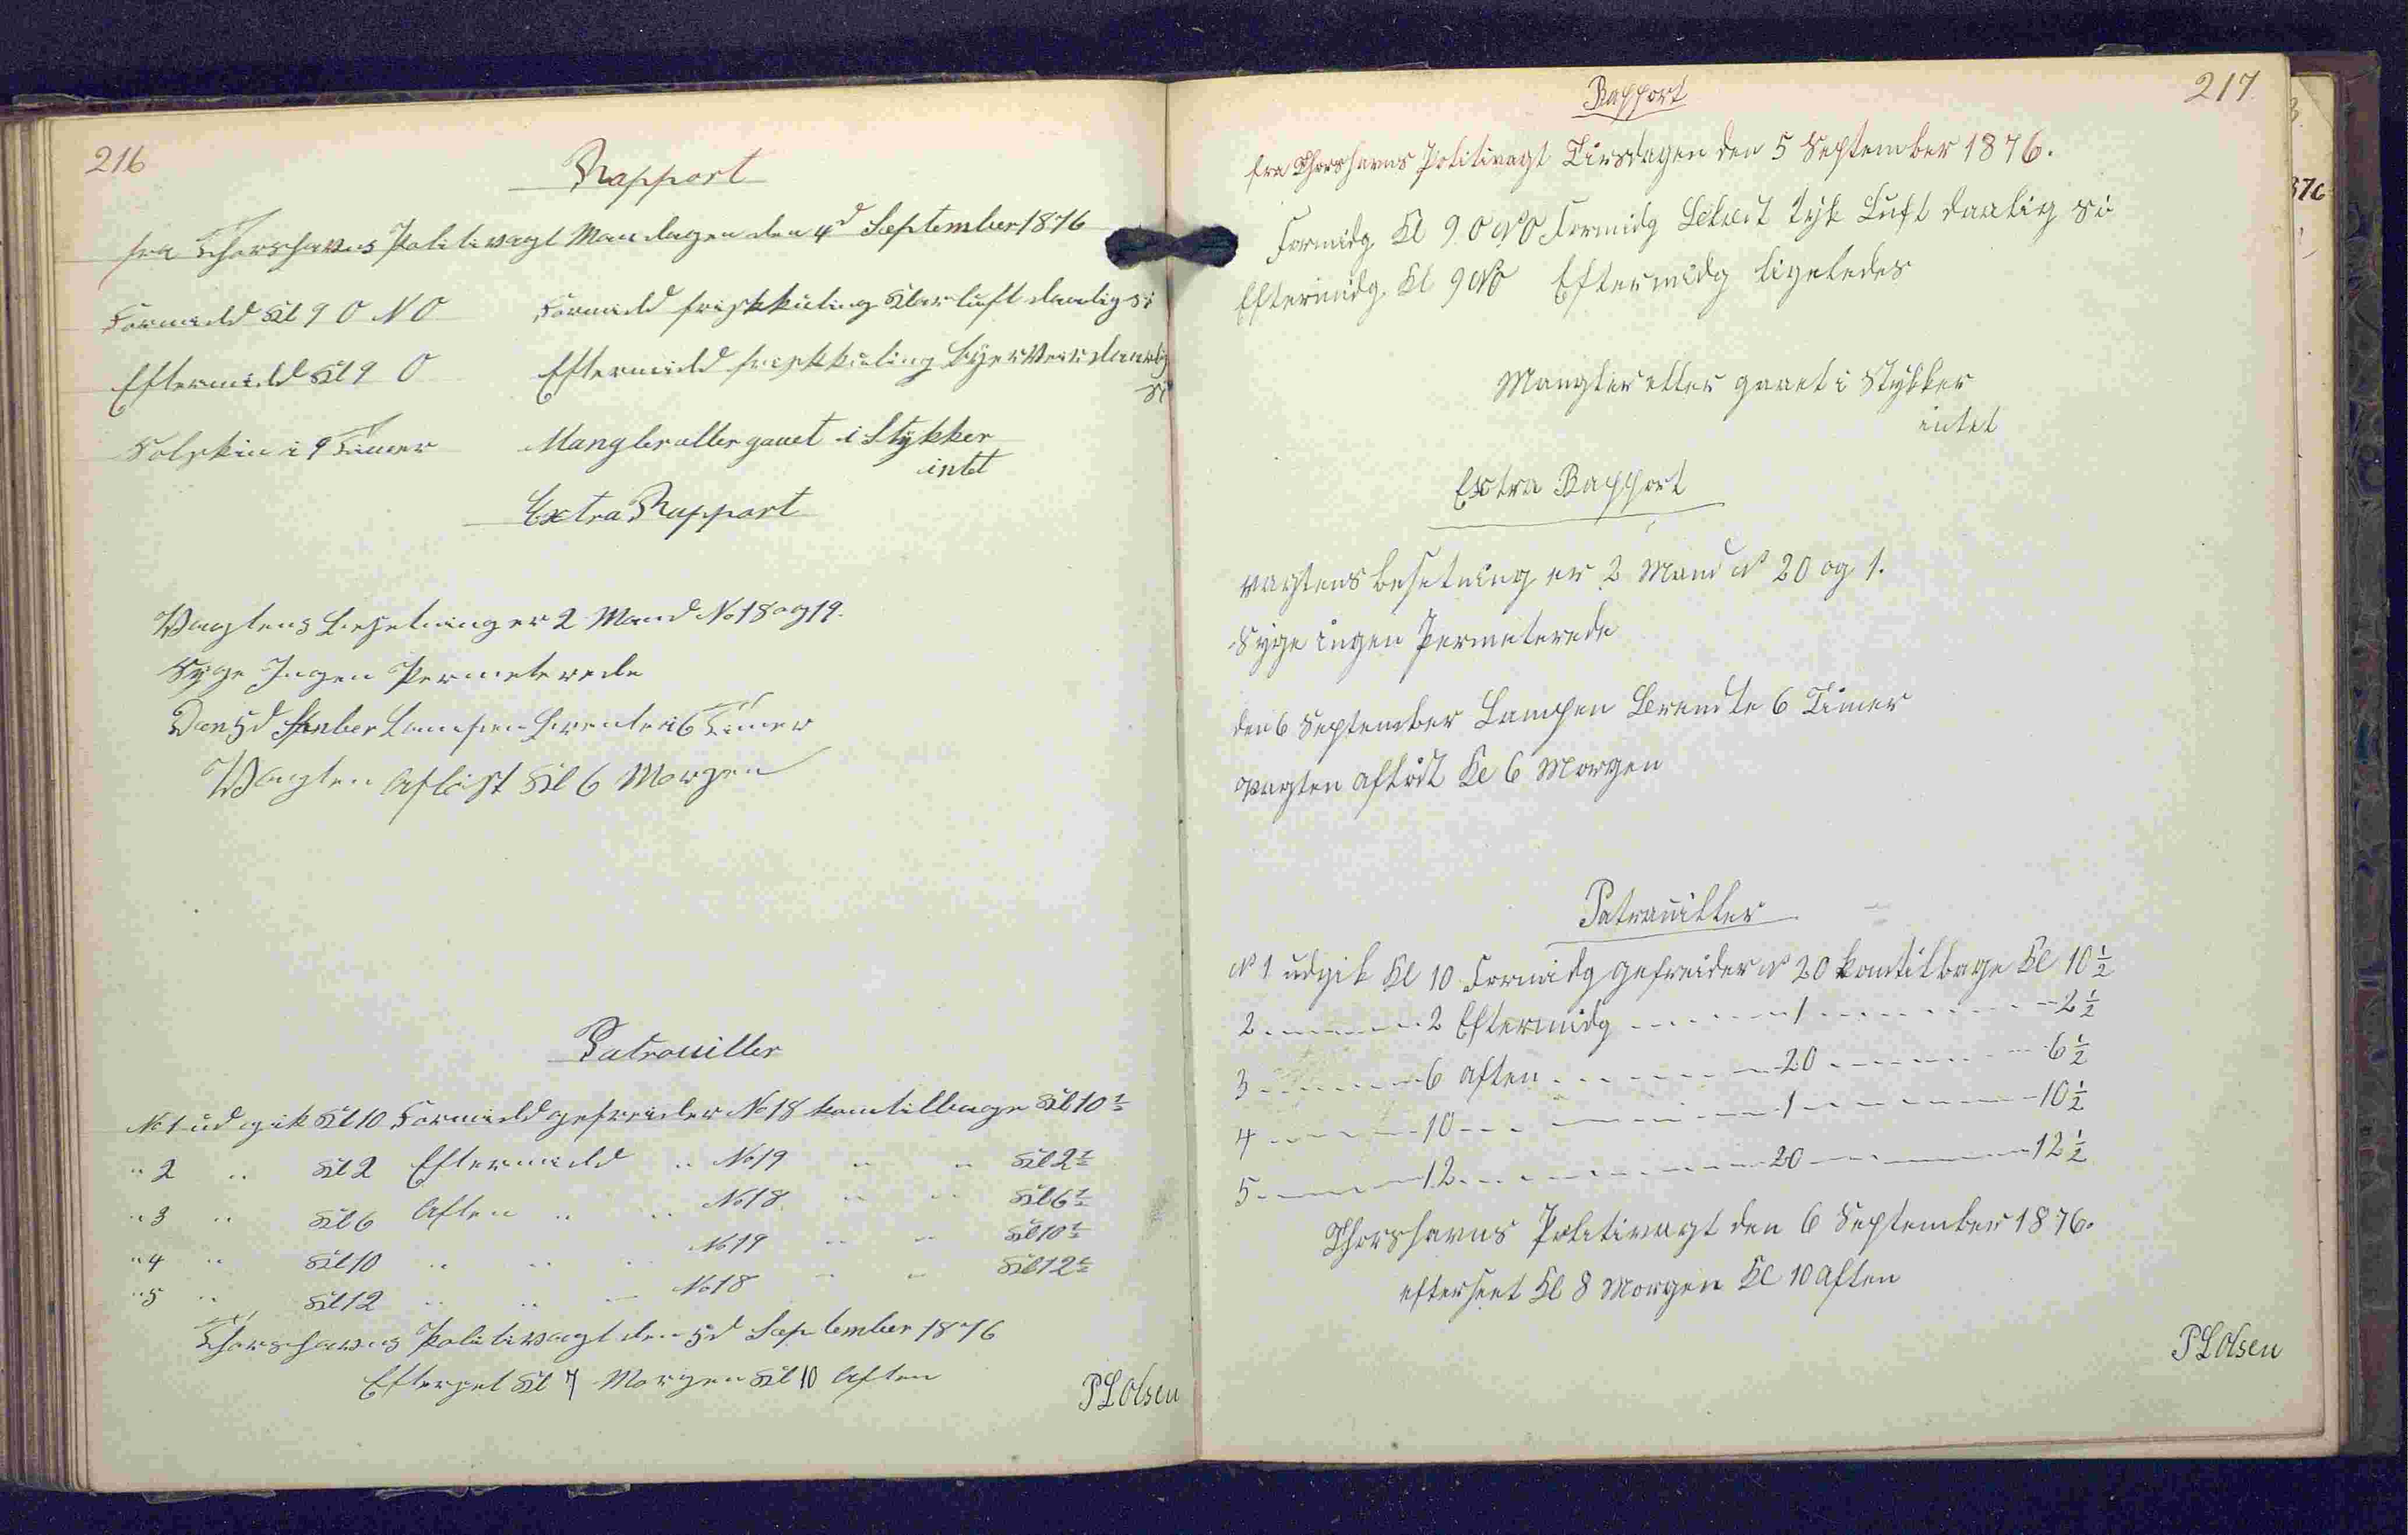 216
Rapport
fra Thorshavns Politivagt Mandagen den 4d September 1876
Formidd Kl 9 O N O Formidd frisk kuling Klar luft daarlig si
Eftermidd Kl 9 O Eftermidd frisk kuling byer Veir daarlig
si
Solskin i 9 Timer Mangler eller gaaet i Stykker
intet
Extra Rapport
Vagtens besetning er 2 Mand No 18 og 19.
Syge Ingen Permeterede
Den 5d Lampen brente i 6 Timer
Vagten Aflöst Kl 6 Morgen
Patrouiller
No 1 ud gik Kl 10 Formidd gefreider No 18 kom tilbage Kl 10 1/2
" 2 " Kl 2 Eftermidd " No 19 " " Kl 2 1/2
" 3 " Kl 6 Aften " " No 18 " " Kl 6 1/2
" 4 " Kl 10 " " " No 19 " " Kl 10 1/2
" 5 " Kl 12 " " " No 18 " " Kl 12 1/2
Thorshavns Politivagt den 5d September 1876
Efterset Kl 7 Morgen Kl 10 Aften
P L Olsen
217
Rapport
fra Thorshavns Politivagt Tirsdagen den 5 September 1876.
Formidg Kl 9 O N O Formidg tyk Luft daarlig si
Eftermidg Kl 9 NO Eftermidg ligeledes
Mangler eller gaaet i Stykker
intet
Extra Rapport
vagtens besetning er 2 Mand N 20 og 1.
Syge ingen Permeterede
den 6 September Lampen Brendte 6 Timer
vagten aflöst Kl 6 Morgen
Patrouiller
N 1 udgik Kl 10 Formidg gefreider N 20 kom tilbage Kl 10 1/2
2 - - - - 2 Eftermidg - - - - 1 - - - - 2 1/2
3 - - - - 6 aften - - - - 20 - - - - 6 1/2
4 - - - - 10 - - - - 1 - - - - 10 1/2
5 - - - - 12 - - - - 20 - - - - 12 1/2
Thorshavns Politivagt den 6 September 1876.
efterseet Kl 8 Morgen Kl 10 aften
P L Olsen